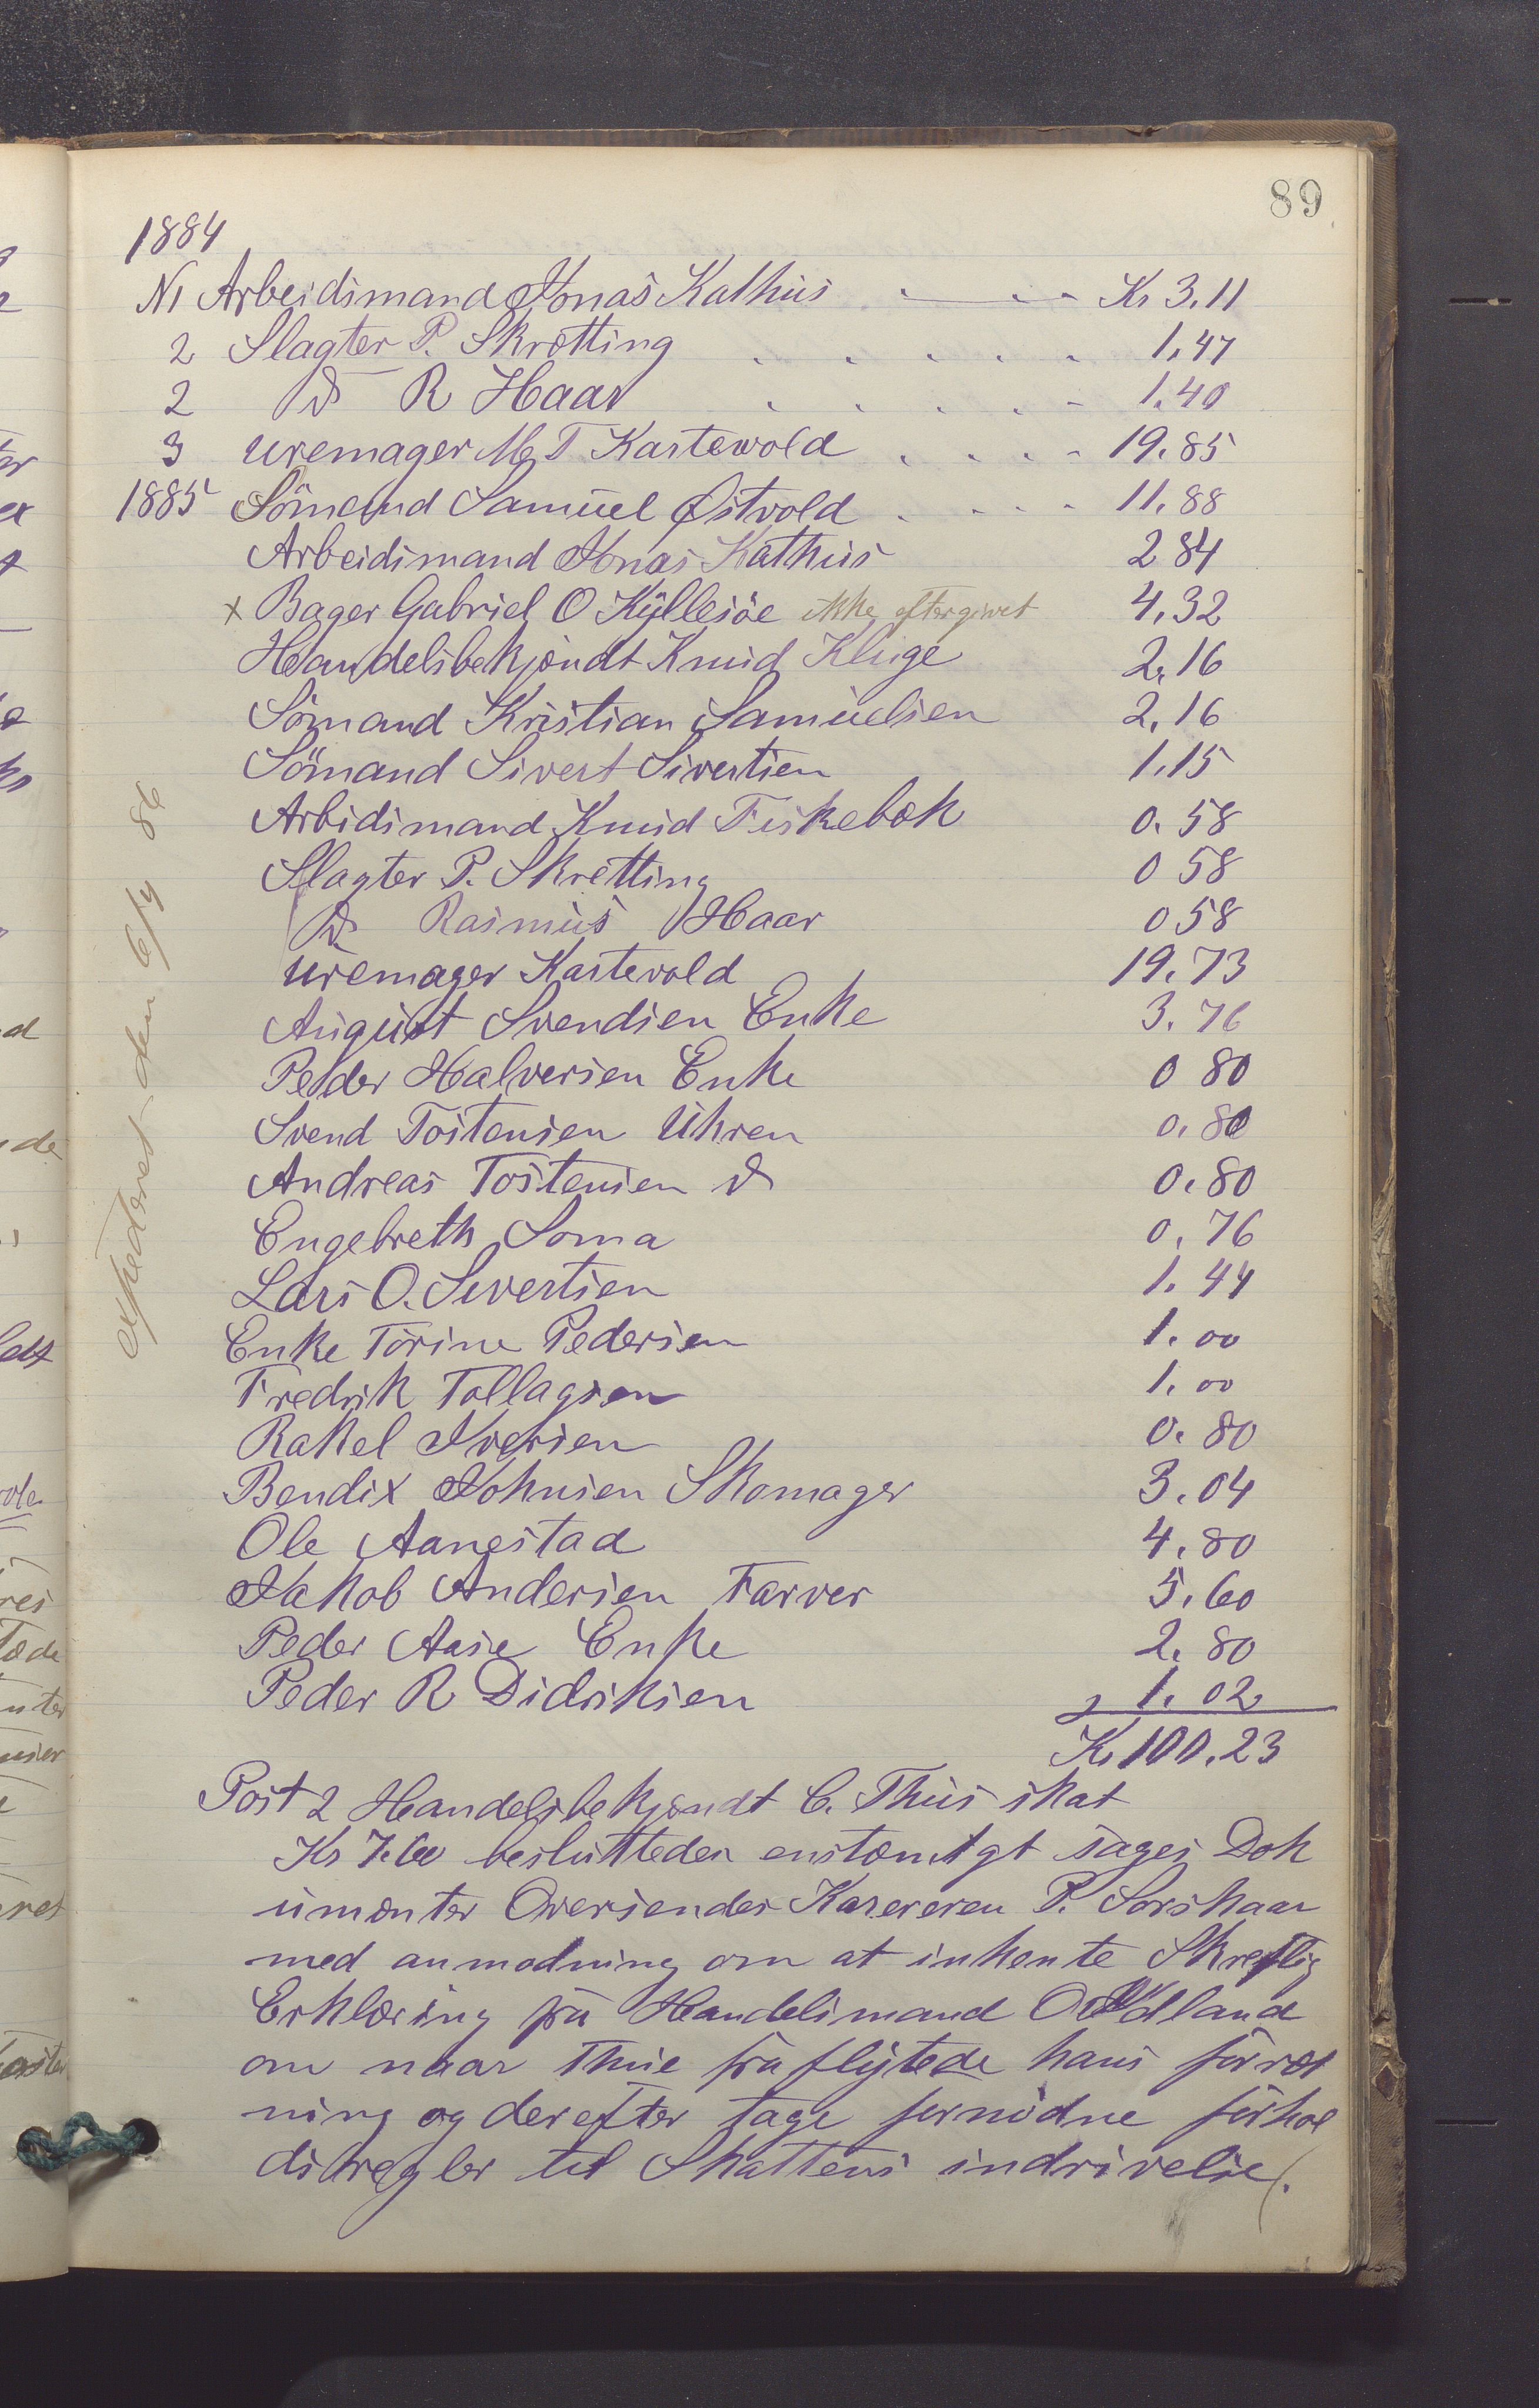 89
1884
N1 Arbeidsmand Jonas Kathus Kr 3.11
2 Slagter P. Skrætting 1.47
2 D R Haar 1.40
3 Uremager M. T Kartevold 19.85
1885 Sömand Samuel Østvold 11.88
Arbeidsmand Jonas Kathus 2 84
x Bager Gabriel O Kyllesöe ikke eftergivet 4.32
Handelsbetjendt Knud Kluge 2.16
Sömand Kristian Samuelsen 2.16
Sömand Sivert Sivertsen 1.15
Arbidsmand Knud Fiskebæk 0.58
Slagter P. Skretting 0 58
D Rasmus Haar 0 58
Uremager Kartevold 19.73
August Svendsen Enke 3.76
Peder Halversen Enke 0 80
Svend Tostensen Uhren 0.80
Andreas Tostensen D 0.80
Engebreth Soma 0.76
Lars O. Sivertsen 1.44
Enke Torine Pedersen 1.00
Fredrik Tollagsen 1.00
Rakel Iversen 0.80
Bendix Johnsen Skomager 3.04
Ole Aanestad 4.80
Jakob Andersen Farver 5.60
Peder Aase Enke 2.80
Peder R Didriksen 1.02
Kr 100.23
Post 2 Handelsbetjendt C. Thus skat
Kr 7.60 besluttedes enstæmigt sages Dok
umenter Oversendes Kasereren P. Sorskaar
med anmodning om at inhente Skreftlig
Erklæring fra Handelsmand Ødland
om naar Thue fraflytede hans forræt
ning og derefter tage fornødne forhol
dsregler til Skattens indrivelse.
expederet den 6/4 86